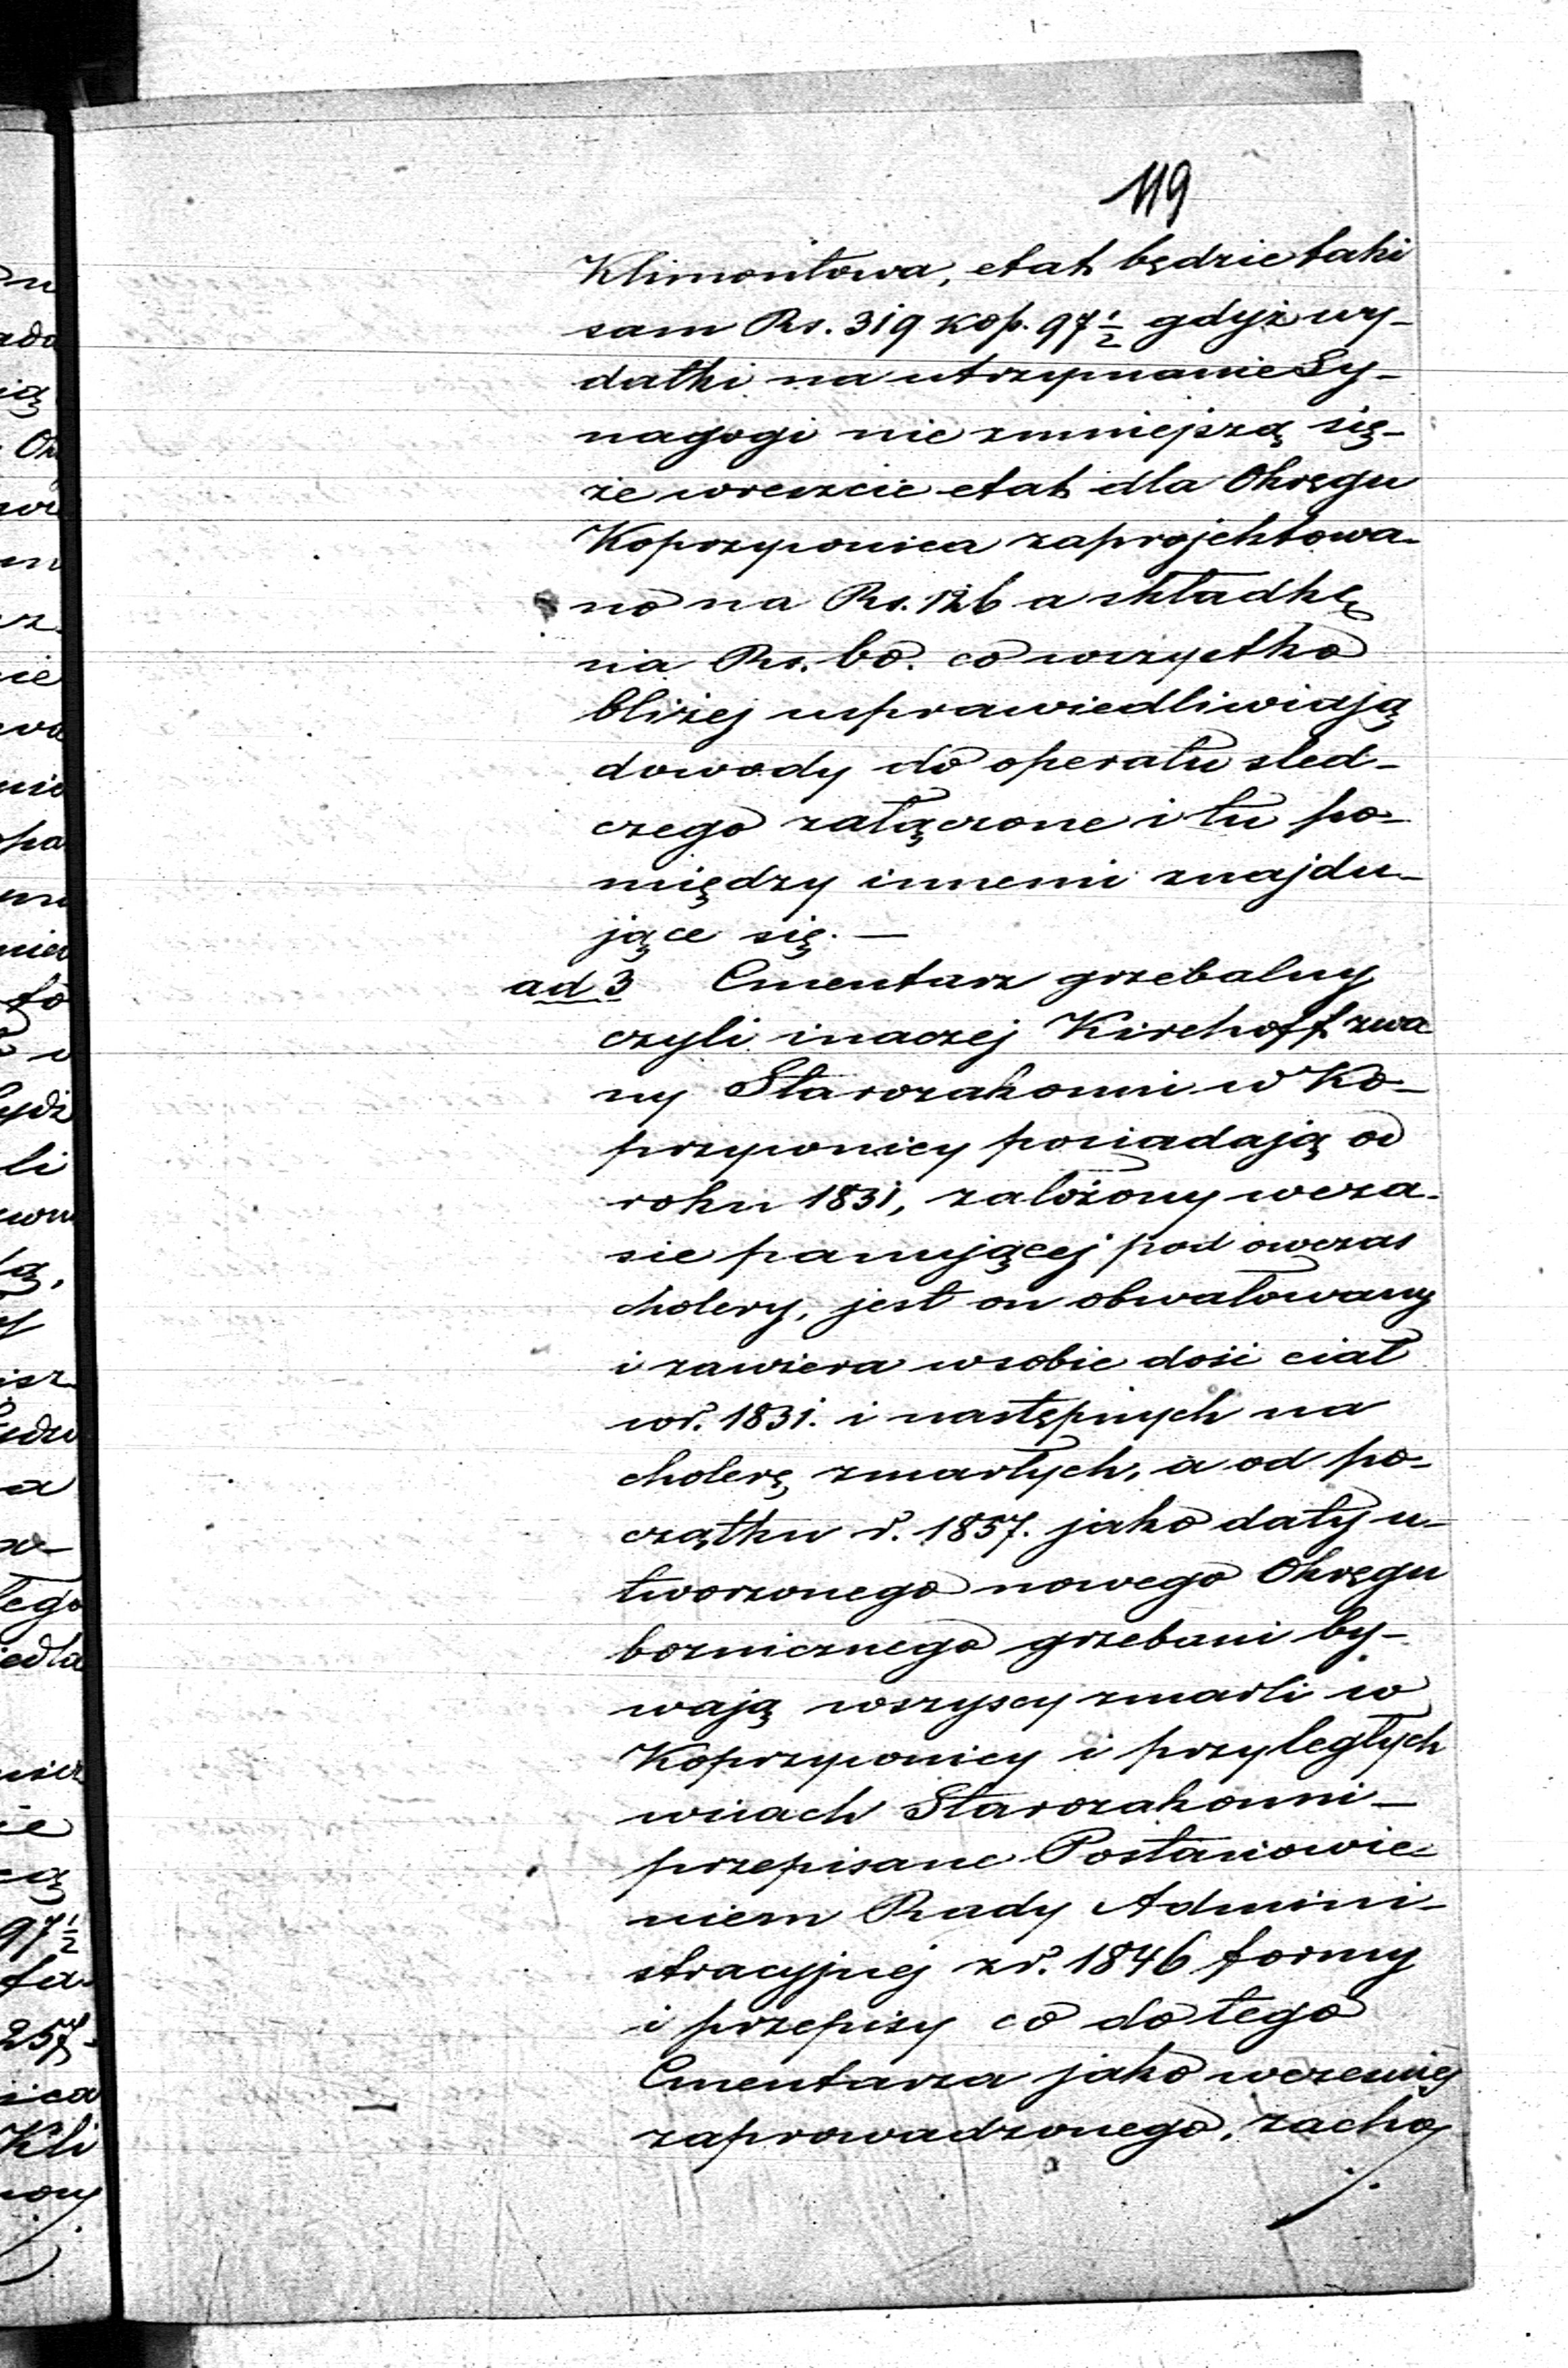 119
Klimontowa, etat będzie taki
sam Rs. 319 kop. 97½ gdyż wy-
datki na utrzymanie Sy-
nagogi nie zmniejszą się-
że wreszcie etat dla Okręgu
Koprzywnica zaprojektowa-
no na Rs. 126 a składkę
na Rs. 60. co wszystko
bliżej usprawiedliwiają
dowody do operatu śled-
czego załączone i tu po-
między innemi znajdu-
jące się. —
ad 3 Cmentarz grzebalny
czyli inaczej Kirchoff zwa
ny Starozakonni w Ko-
przywnicy posiadają od
roku 1831, założony wcza-
sie panującej pod ówczas
cholery, jest on obwałowany
i zawiera wsobie dość ciał
wr. 1831. i następnych na
cholerę zmarłych, a od po-
czątku r. 1857. jako daty u-
tworzonego nowego Okręgu
boznicznego grzebani by-
wają wszyscy zmarli w
Koprzywnicy i przyległych
wsiach Starozakonni-
przepisane Postanowie-
niem Rady Admini-
stracyjnej zr. 1846 formy
i przepisy co do tego
Cmentarza jako wcześniej
zaprowadzonego, zacho
./.